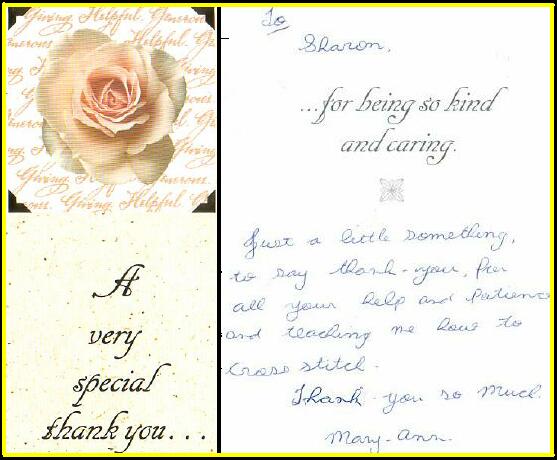 Giving. Helpful. Generous.
Generous. Helpful. Giving.
Giving. Helpful. Generous.
Giving. Helpful. Ge
A
very
special
thank you...
To
Sharon,
...for being so kind
and caring.
Just a little something,
to say thank-you, for
all your help and patience
and teaching me how to
cross stitch.
Thank-you so much.
Mary-Ann.